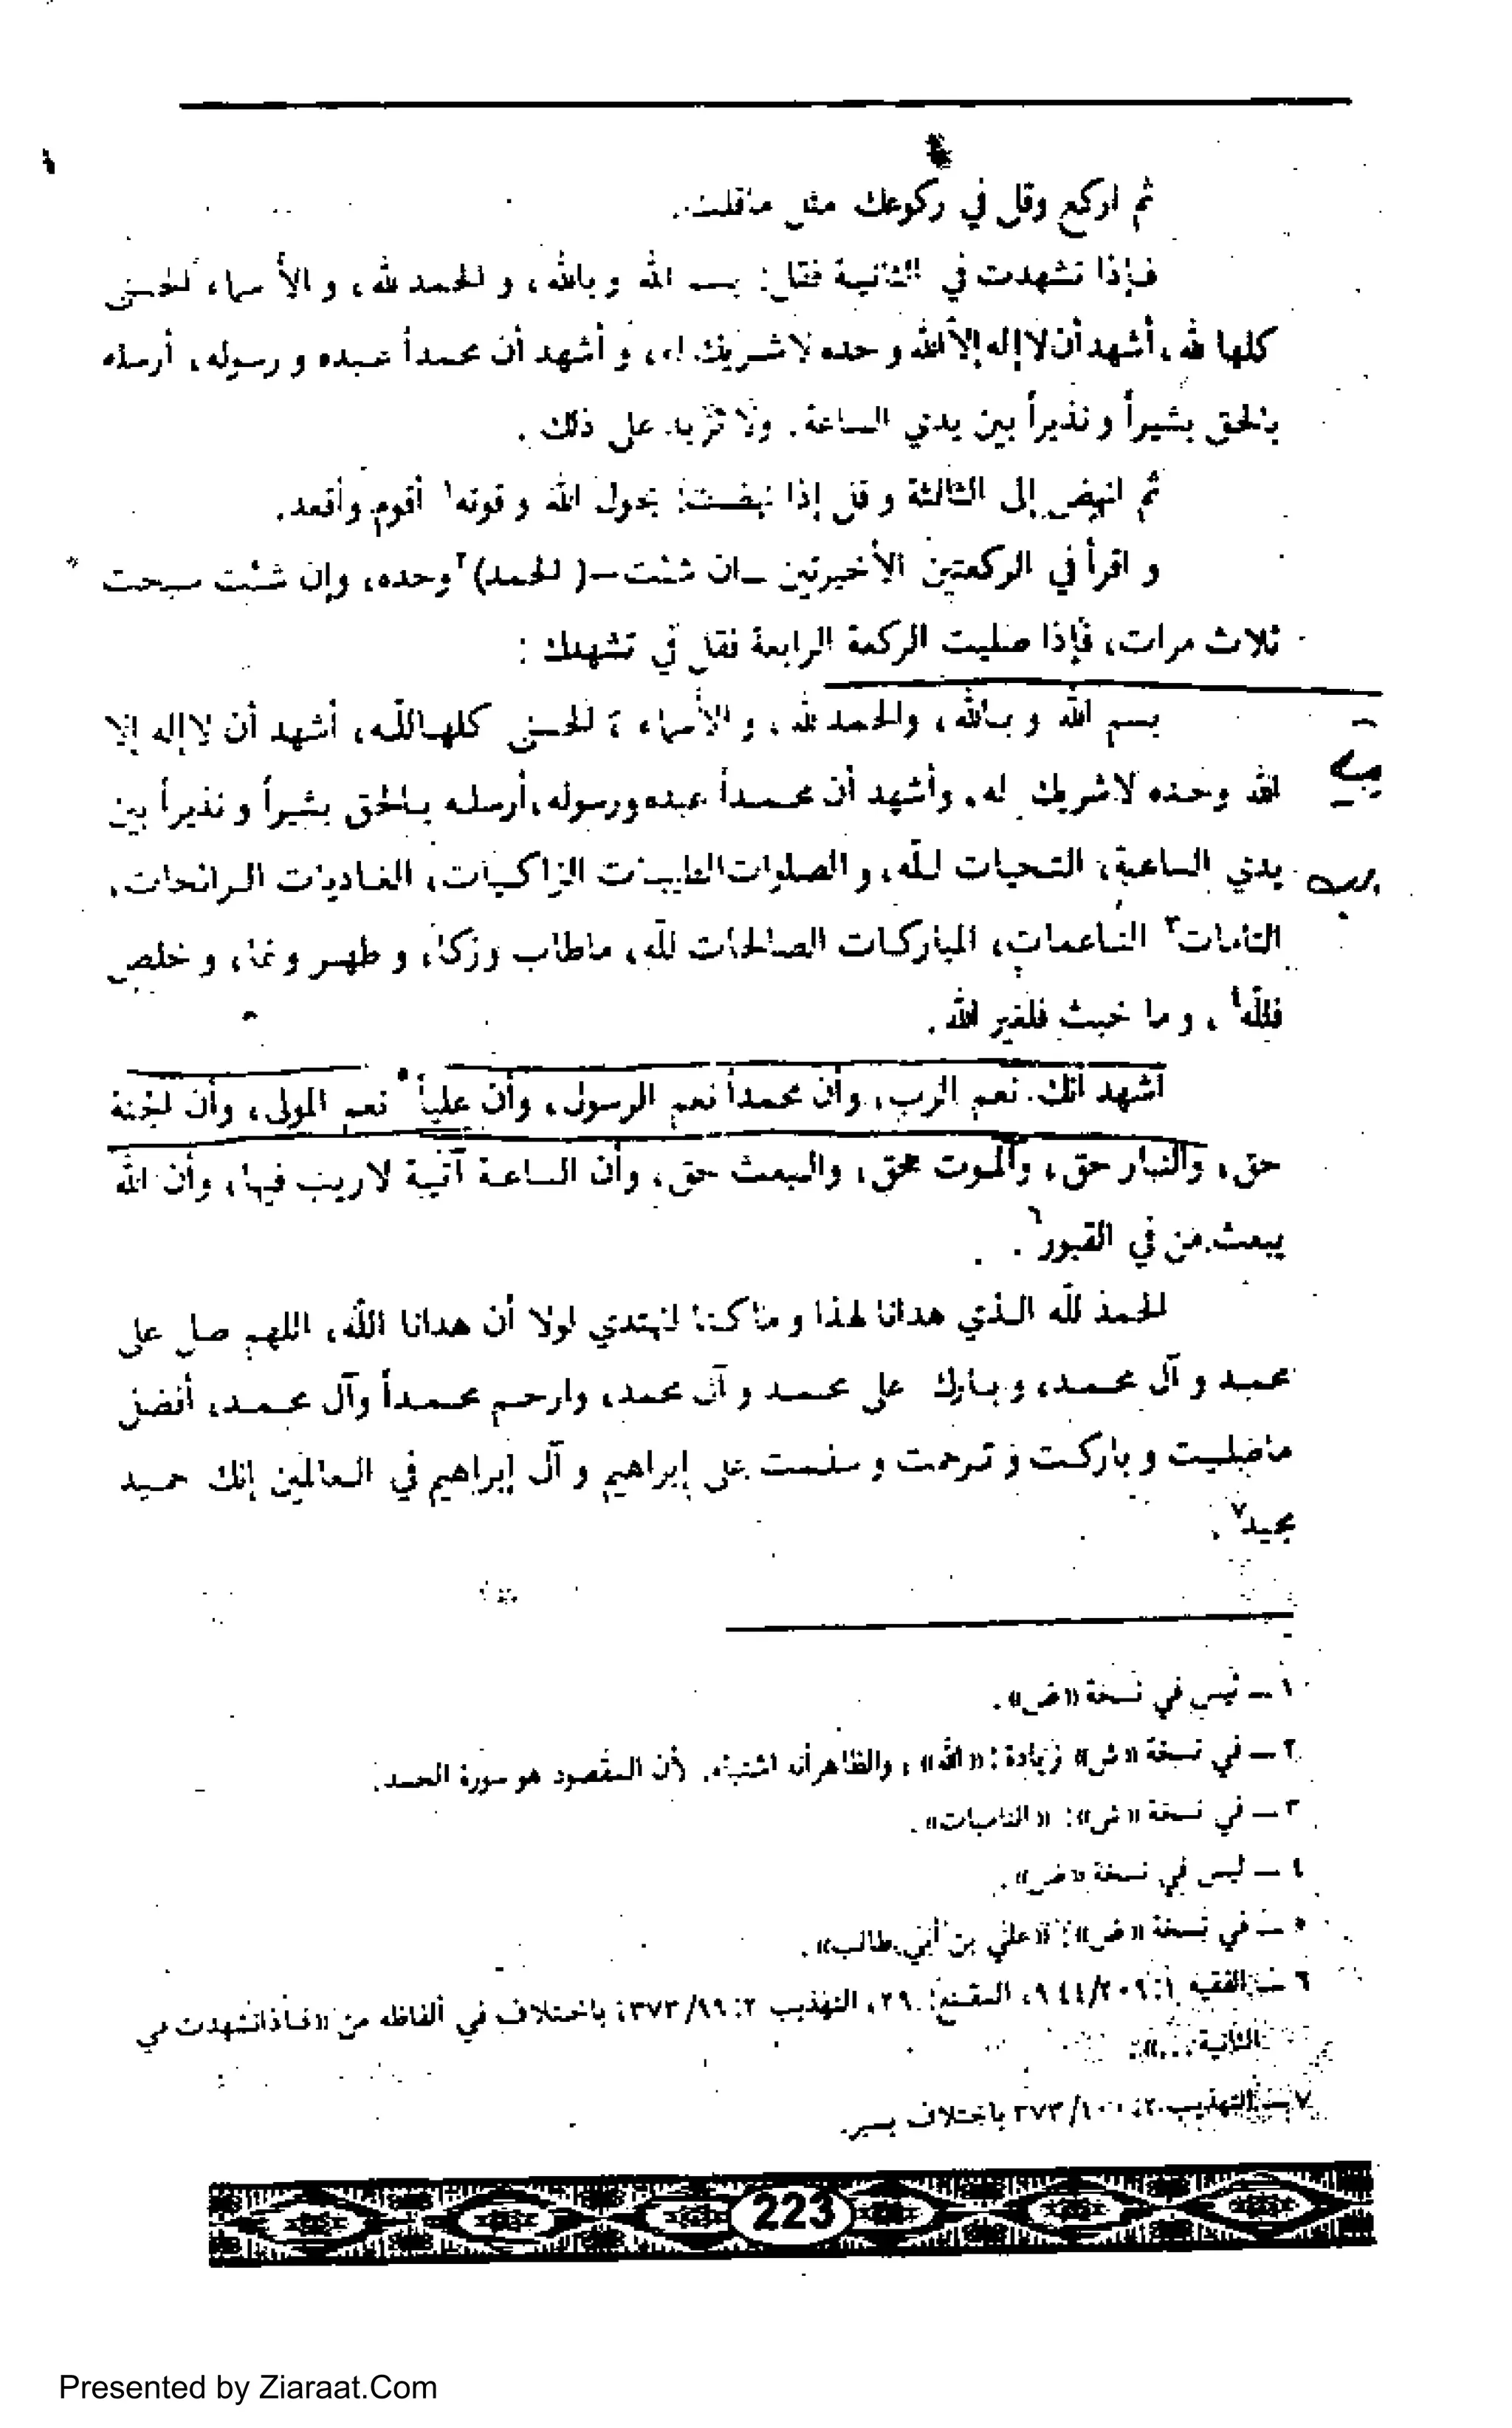 ثم اركع وقل في ركوعك مثل ماقلت.
فإذا تشهدت في الثانية فقل: بسم الله و بالله، و الحمد لله، و الأسماء الحسنى
كلها لله، أشهد أن لا إله إلا الله و حده لا شريك له، و أشهد أن محمداً عبده و رسوله، أرسله
بالحق بشيراً و نذيراً بين يدي الساعة. ولا تزيد على ذلك.
ثم انهض إلى الثالثة و قل إذا نهضت: بحول الله و قوته١ أقوم وأقعد.
و اقرأ في الركعتين الأخيرتين _ان شئت_( الحمد)٢ وحده، وإن شئت سبحت
ثلاث مرات، فإذا صليت الركعة الرابعة فقل في تشهدك :
بسم الله و بالله، والحمد لله، و الأسماء الحسنى كلها لله، أشهد أن لا إله إلا
الله وحده لا شريك له، وأشهد أن محمداً عبده ورسوله، أرسله بالحق بشيراً و نذيراً بين
يدي الساعة، التحيات لله، و الصلوات الطيبات الزاكيات، الغاديات الرائحات،
التامات٣ الناعمات، المباركات الصالحات لله، ماطاب وزكا، و طهر و نما، و خلص
فلله٤، و ما خبث فلغير الله.
اشهد انك نعم الرب، وأن محمداً نعم الرسول، وأن علياً٥ نعم المولى، وأن الجنة
حق، والنار حق، والموت حق، والبعث حق، وأن الساعة آتية لا ريب فيها، وأن الله
يبعث من في القبور٦.
الحمد لله الذي هدانا لهذا و ما كنا لنهتدي لولا أن هدانا الله، اللهم صل على
محمد و آل محمد، و بارك على محمد و آل محمد، وارحم محمداً وآل محمد، أفضل
ماصليت و باركت و ترحمت و سلمت على إبراهيم و آل إبراهيم في العالمين إنك حميد
مجيد٧.
١ – ليس في نسخة «ض».
٢ – في نسخة «ش» زيادة: «الله»، والظاهر أنه اشتباه، لأن المقصود هو سورة الحمد.
٣ – في نسخة «ش»: «الناميات».
٤ – ليس في نسخة «ض».
٥ – في نسخة «ض»: «علي بن أبي طالب».
٦ – الفقيه ١: ٢٠٩/٩٤٤، المقنع: ٢٩، التهذيب ٢: ٩٩/٣٧٣، باختلاف في ألفاظه من «فاذا تشهدت في
الثانية...».
٧ – التهذيب ٢: ١٠٠/٣٧٣ باختلاف يسير.
223
Presented by Ziaraat.Com